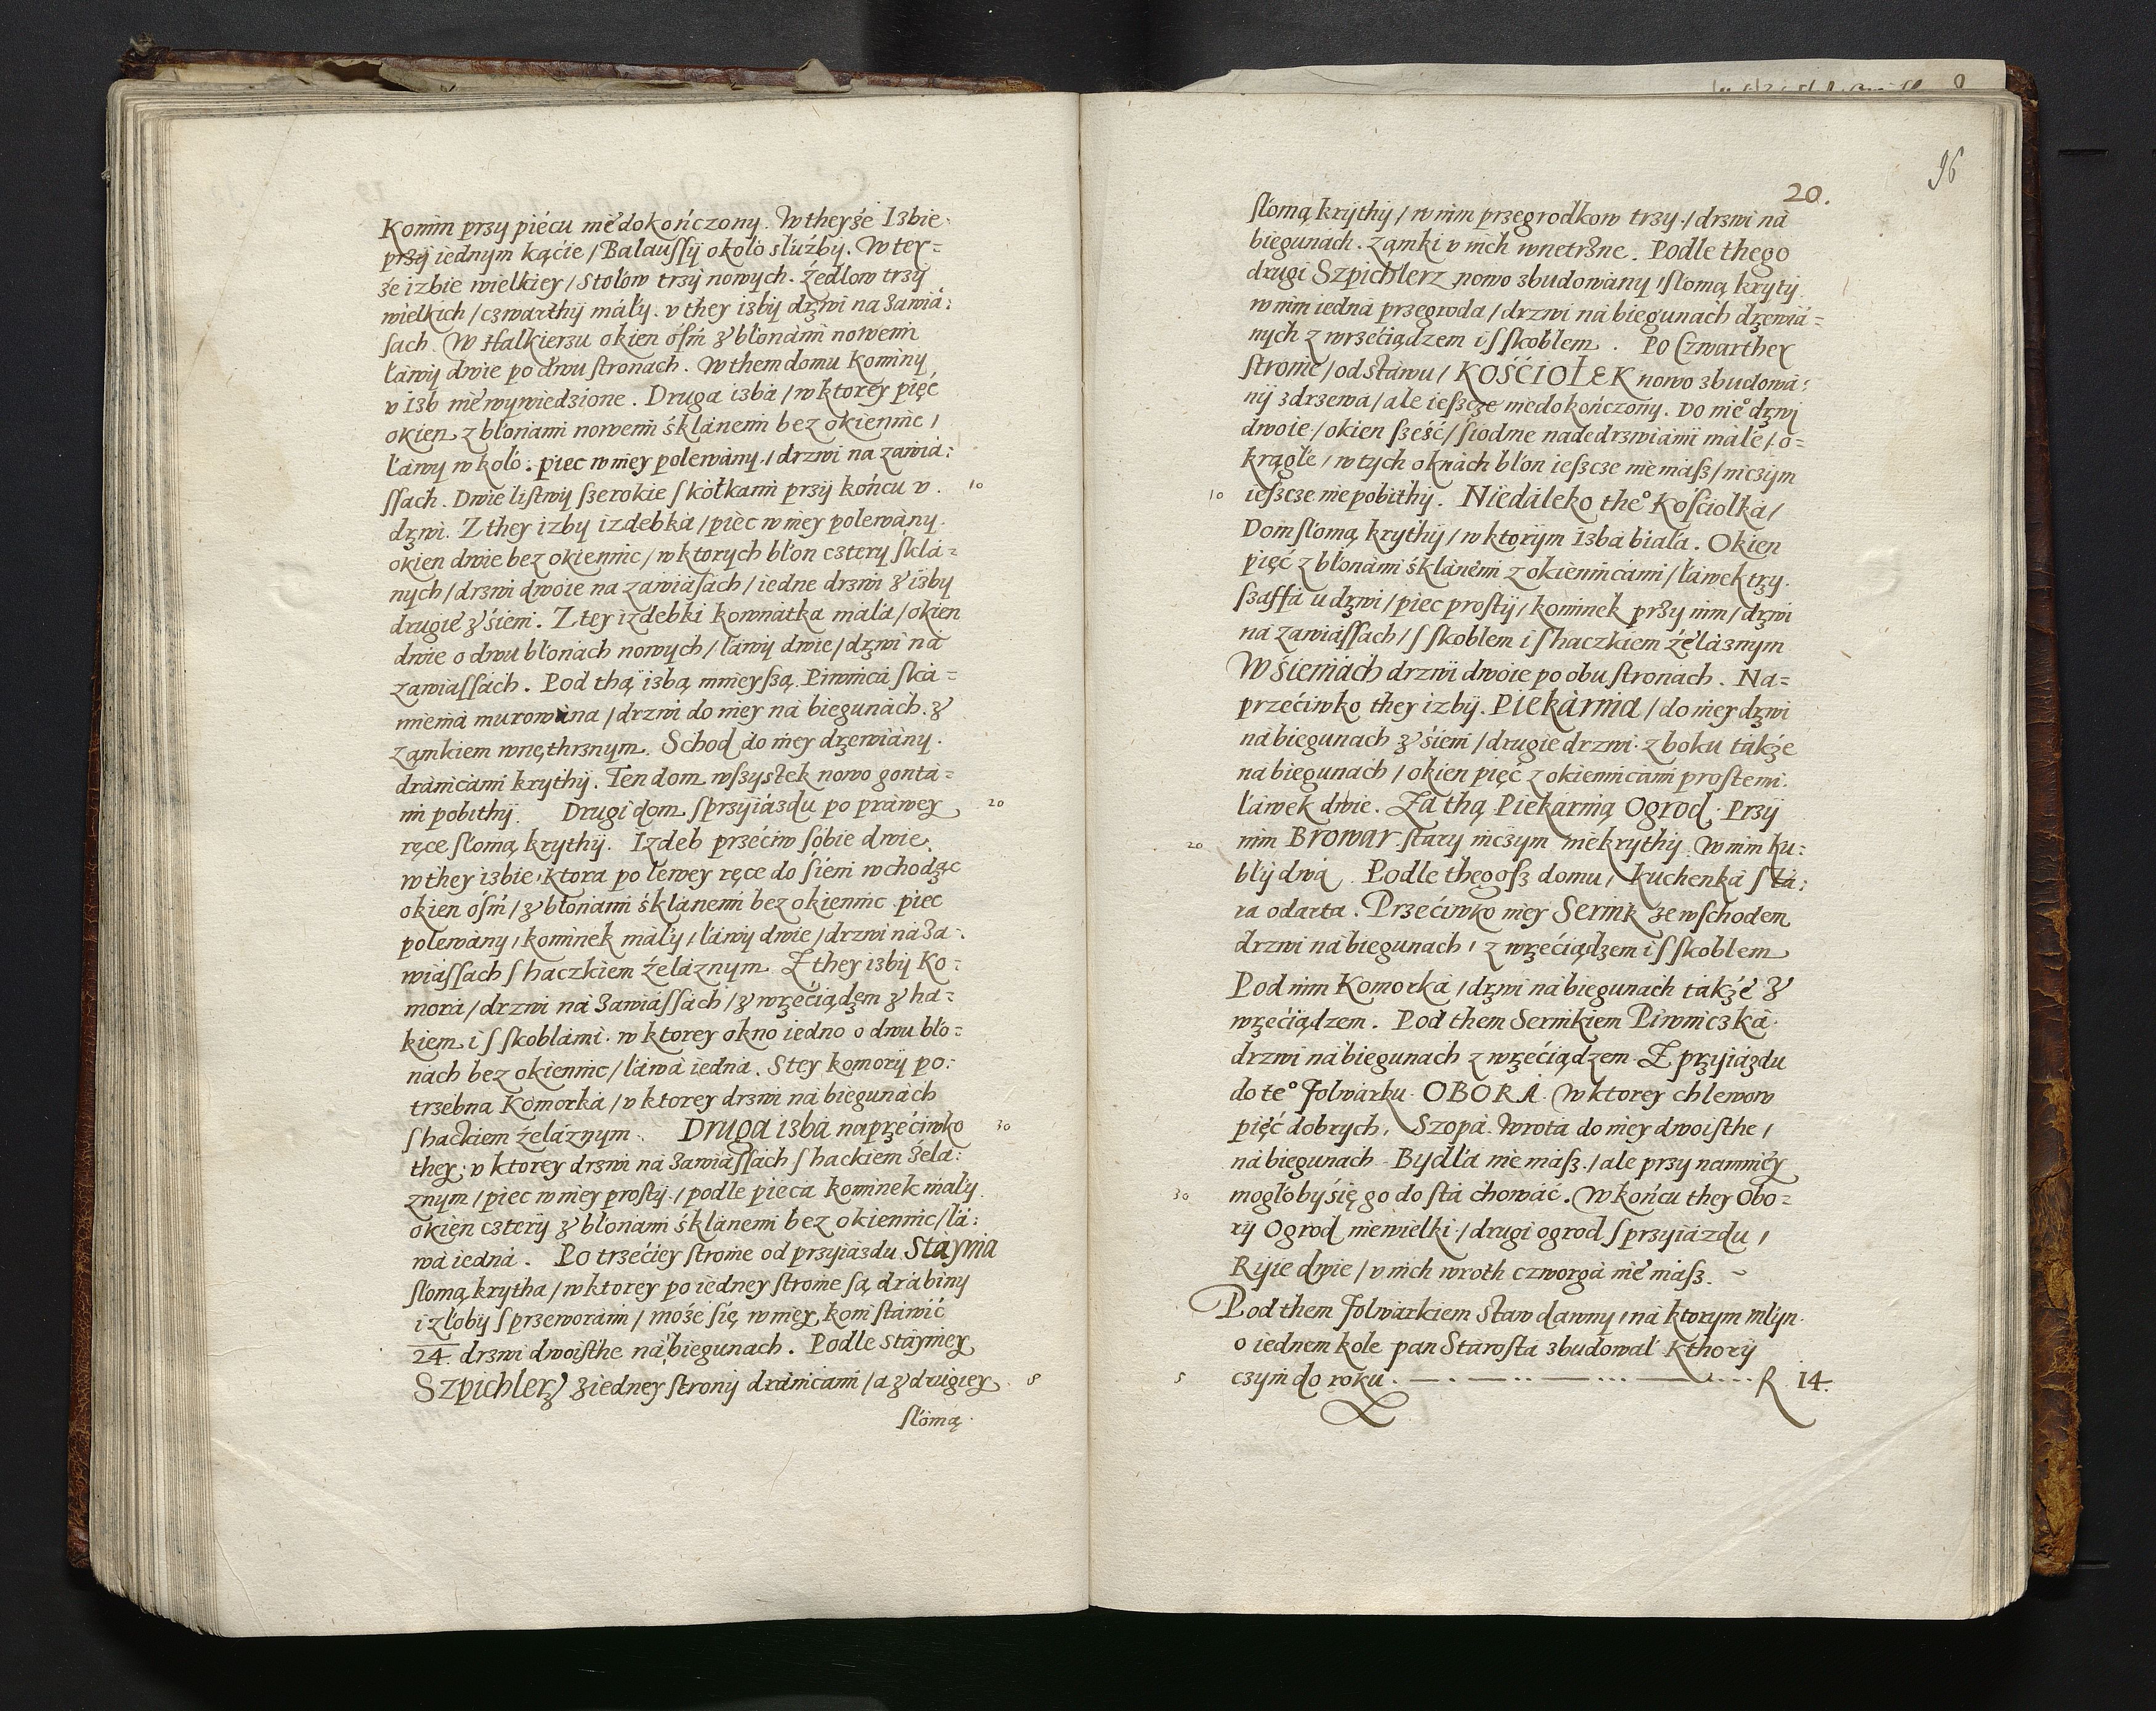 Komin przy piécu niedokończony. W theyże Izbie
przÿ iednym kącie / Balaussÿ około służby. W tey=
że izbie wielkiey / Stołow trzÿ nowych. Zedlow trzÿ
wielkich / czwarthÿ máły. v they izbÿ drzwi na zawia:
sach. W Halkierzu okien ośḿ z błonámi nowemi
ławÿ dwie po dwu stronach. W them domu Kominy
v Izb niewywiedzione. Druga izbá / w ktorey pięć
okien z błonami nowemi śklánemi bez okiennic /
Ławy w koło. piec w niey polewány. / drzwi na zawiá:
ssach. Dwie listwÿ szerokie s kołkami przÿ końcu v. 10
drzwi. Z they izby izdebká / piec w niey polewány.
okien dwie bez okiennic / w ktorych błon cztery sklá=
nych / drzwi dwoie na zawiásách / iedne drzwi z izby
drugie z śieni. Z tey izdebki kownátka máła / okien
dwie o dwu błonách nowych / ławÿ dwie / drzwi ná
zawiassách. Pod thą izbą mnieyszą. Piwnicá ská=
mieniá murowána / drzwi do niey ná biegunách. z
zamkiem wnęthrznym. Schod do niey drzewiány.
dránicámi krythÿ. Ten dom wszystek nowo gontá=
mi pobithÿ. Drugi dom s przyiázdu po práwey 20
ręce słomą krythÿ. Izdeb przećiw sobie dwie.
w they izbie, ktora po lewey ręce do śieni wchodząc
okien ośḿ / z błonámi śklánemi bez okiennic piec
polewány, kominek máły, ławÿ dwie / drzwi ná za:
wiássach s haczkiem żeláznym. Z they izbÿ Ko:
mora / drzwi ná zawiássách / z wrzećiądzem z ha=
kiem i s skoblámi. w ktorey okno iedno o dwu bło=
nách bez okiennic / ławá iedná. S tey komorÿ po:
trzebna Komorka / v ktorey drzwi ná biegunách
s hackiem żeláznym. Druga izbá naprzećiwko 30
they: v ktorey drzwi ná zawiássách s hackiem żela:
znym / piec w niey prostÿ. / podle piecá kominek mały.
okien czterÿ z błonámi śklánemi bez okiennic / łá:
wá iedná. Po trzećiey stronie od przyiázdu Stáynia
słomą krytha / w ktorey po iedney stronie są drábiny
i złobÿ s przeworámi / może się w niey koni stáwić
24. drzwi dwoisthe ná biegunach. Podle Stáyniey
Szpichlerz z iedney stronÿ dránicámi / a z drugiey 5
słomą.
96
20.
słomą krÿthÿ / w nim przegrodkow trzy. / drzwi ná
biegunach. zamki v nich wnetrzne. Podle thego
drugi Szpichlerz nowo zbudowány, słomą krytÿ
w nim iedná przegroda / drzwi ná biegunách drzewiá=
nych z wrzećiądzem i s skoblem. Po Czwarthey
stronie / od stáwu / KOŚĆIOŁEK nowo zbudowá:
nÿ z drzewá / ale ieszcze niedokończony. Do nieº drzwi
dwoie / okien sześć / siodme nadedrzwiámi máłe / o=
krągłe / w tych oknách błon ieszcze nie mász / niczÿm
10 ieszcze nie pobithÿ. Niedáleko theº Kościołká /
Dom słomą krythÿ / w ktorÿm Izbá biała. Okien
pięć z błonámi śklánemi z okiennicámi / ławek trzy.
szaffá u drzwi / piec prostÿ, kominek przy nim / drzwi
ná zawiássach / s skoblem i s haczkiem żéláznym
W śieniách drzwi dwoie po obu stronach. Na=
przećiwko they izbÿ. Piekárnia / do niey drzwi
ná biegunach z śieni / drugie drzwi z boku także
na biegunách / okien pięć z okiennicámi prostemi.
Ławek dwie. Zá thą Piekárnią Ogrod. Przÿ
20 nim Browar stary niczym niekrythÿ. W nim ku:
blÿ dwá. Podle thegosz domu, kuchenká stá:
ra odarta. Przećiwko niey Sernik ze wschodem
drzwi ná biegunách, z wrzećiądzem i s skoblem
Pod nim Komorka, drzwi ná biegunách także z
wrzećiądzem. Pod them Sernikiem Piwniczká.
drzwi ná biegunách z wrzećiądzem. Z przyiázdu
do teº Folwárku OBORA. W ktorey chlewow
pięć dobrych, Szopá. Wrota do niey dwoisthe,
ná biegunách. Bydłá nie mász. / ale przy namniéy
30 mogłobyśię go do stá chowáć. W końcu they Obo=
rÿ Ogrod niewielki. / drugi ogrod s przyiázdu /
Rÿie dwie / v nich wroth czworgá nie mász.
Pod them Folwárkiem Staw dawny, ná ktorym młÿn.
o iednem kole pan Stárosta zbudował Kthorÿ
5 czÿni do roku. R 14.